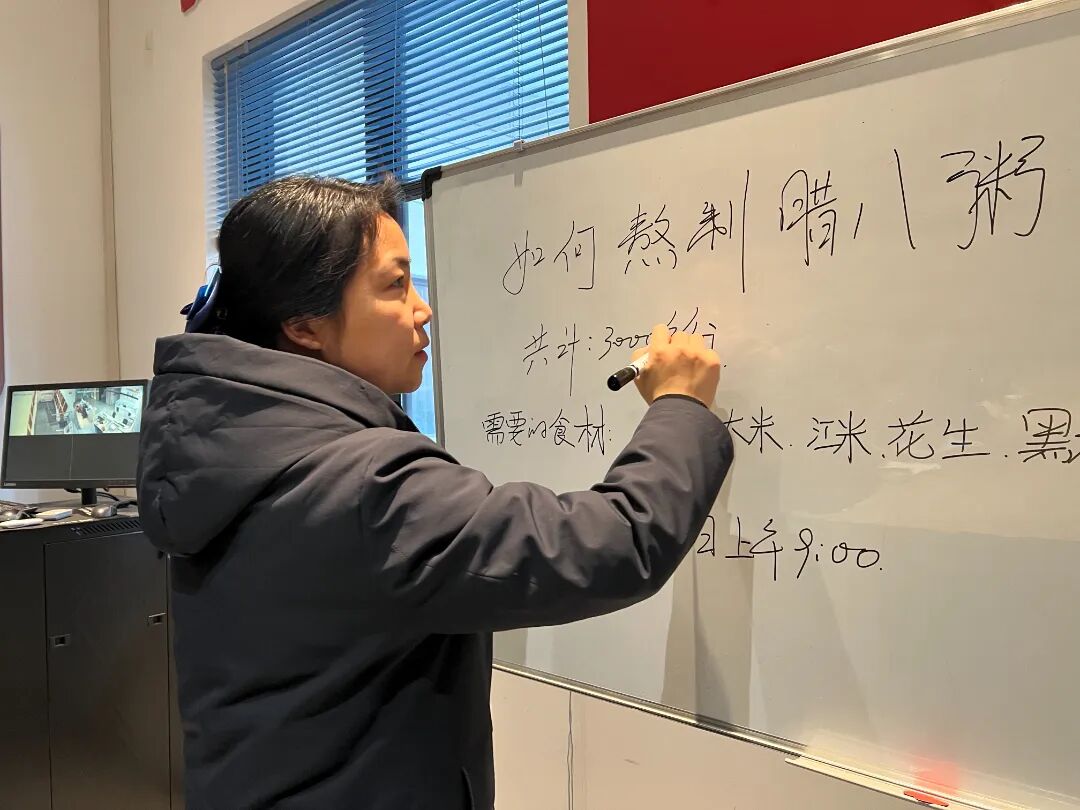 如何熬制腊八粥
共计:3000
需要的食材: 大米.江米.花生.黑
日上午9:00.